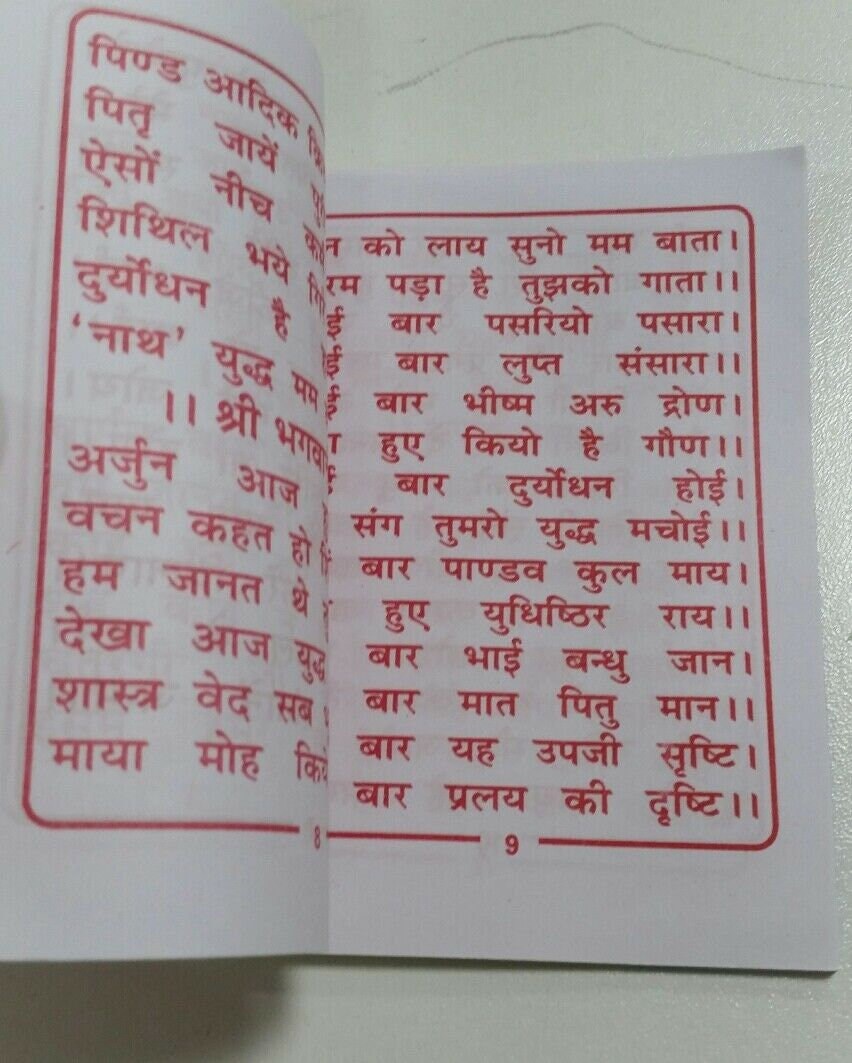 पिण्ड आदिक
पितृ जायें
ऐसों नीच
शिथिल भये
दुर्योधन है
‘नाथ’ युद्ध मम
।। श्री भगवा
अर्जुन आज
वचन कहत हो
हम जानत थे
देखा आज युद्ध
शास्त्र वेद सब
माया मोह
8
को लाय सुनो मम बाता।
पड़ा है तुझको गाता।।
बार पसरियो पसारा।
बार लुप्त संसारा।।
बार भीष्म अरु द्रोण।
हुए कियो है गौण।।
बार दुर्योधन होई।
संग तुमरो युद्ध मचोई।।
बार पाण्डव कुल माय।
हुए युधिष्ठिर राय।।
बार भाई बन्धु जान।
बार मात पितु मान।।
बार यह उपजी सृष्टि।
बार प्रलय की दृष्टि।।
9